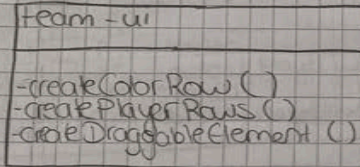 team-ui
-createColorRow()
-createPlayerRows()
-createDraggableElement ()